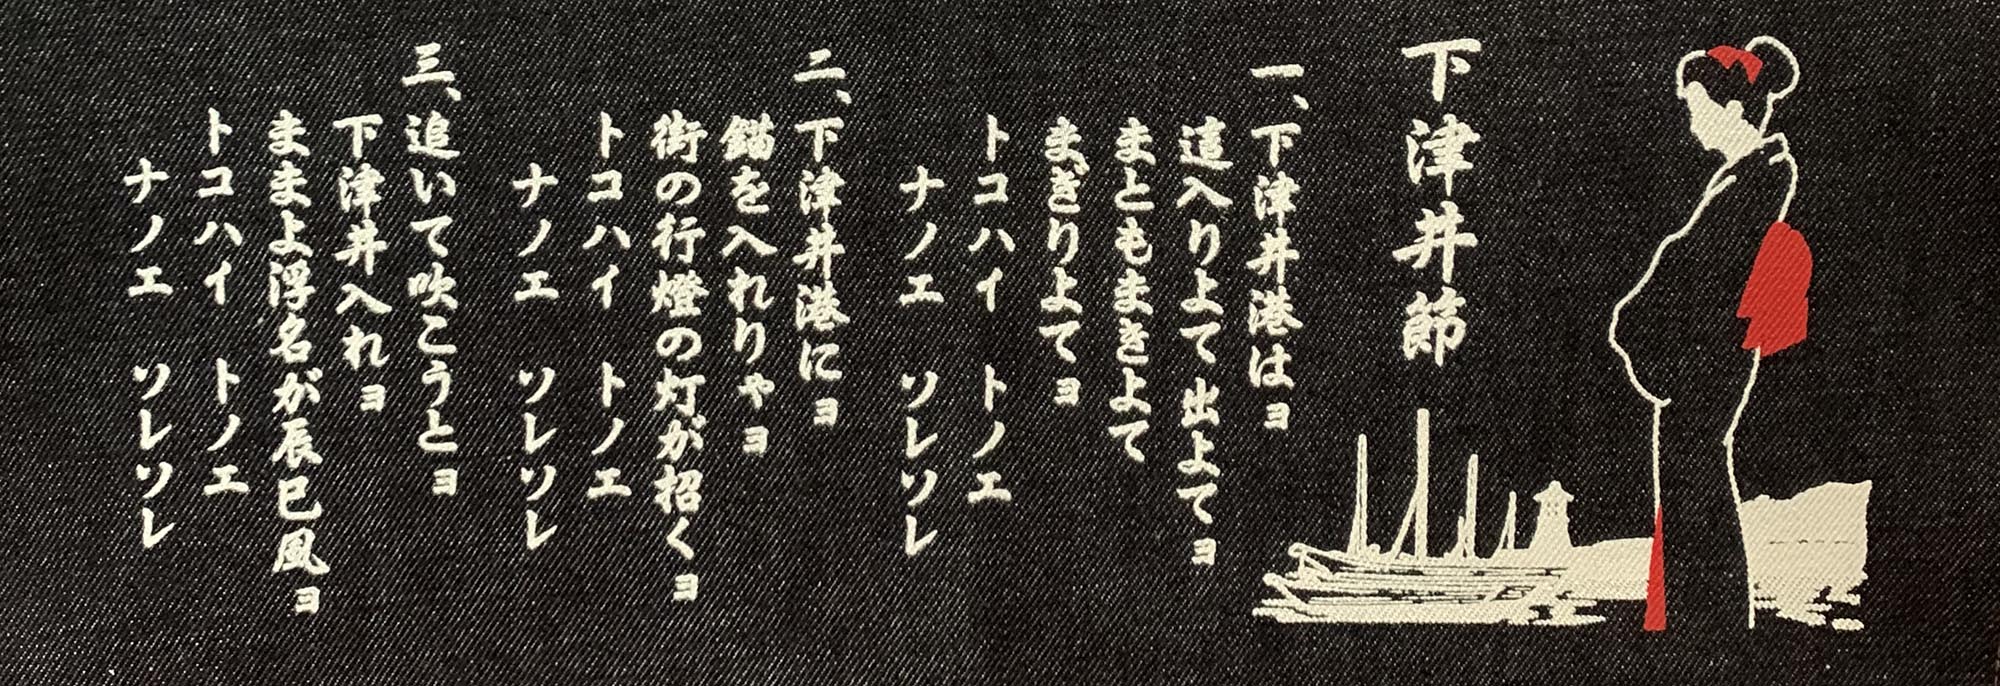 下津井節
一、下津井港はヨ
這入りよて出よてヨ
まともまきよて
まぎりよてヨ
トコハイ トノエ
ナノエ ソレソレ
二、下津井港にヨ
錨を入れりゃヨ
街の行燈の灯が招くヨ
トコハイ トノエ
ナノエ ソレソレ
三、追いて吹こうとヨ
下津井入れヨ
ままよ浮名が辰巳風ヨ
トコハイ トノエ
ナノエ ソレソレ